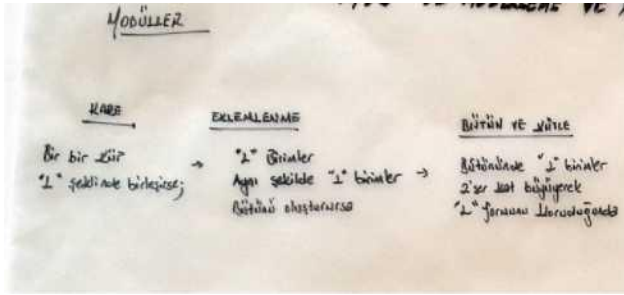 VE
MODÜLLER
KARE
Bir bir küp
"L" şeklinde birleşirse;
→
EKLEMLENME
"L" Birimler
Aynı şekilde "L" birimler
Bütünü oluşturursa
→
BÜTÜN VE KÜTLE
Bütününde "L" birimler
2'şer kat büyüyerek
"L" formunu koruduğunda